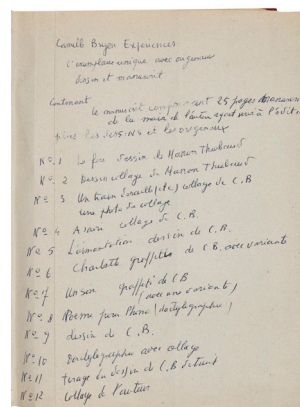 Camille Bryen Expériences
L'exemplaire unique avec originaux
dessin et manuscrit
Contenant
le manuscrit comprenant 25 pages
de la main de l'auteur ayant servi à l'édit
plus les dessins et les originaux
N° 1 dessin de Manon Thiebaud
N° 2 Dessin collage de Manon Thiebaud
N° 3 Un train (etc) collage de C.B
une photo du collage
N° 4 collage de C.B.
N° 5 L'émentation dessin de C.B.
N° 6 Charlotte graffiti de C.B. avec variante
N° 7 Un sou graffiti de C.B
(avec une variante)
N° 8 Poème pour Phono (dactylographié)
N° 9 dessin de C.B.
N° 10 Dactylographie avec collage
N° 11 tirage du dessin de C.B détruit
N° 12 collage de l'auteur